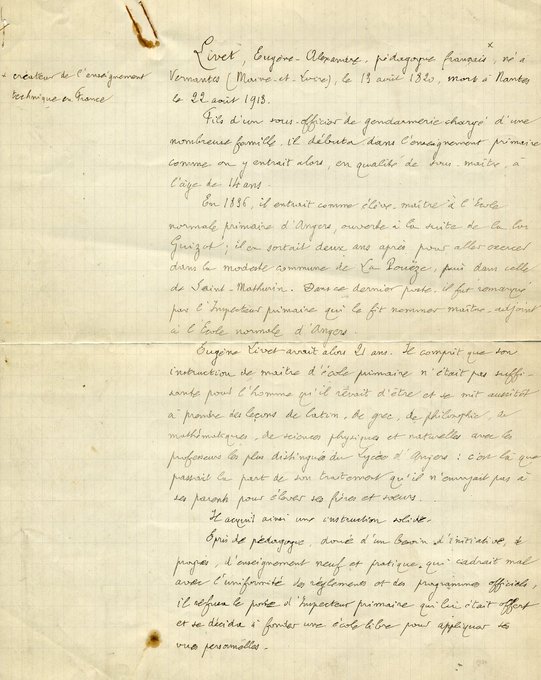 Livet, Eugène-Alexandre, pédagogue français, x né à
Vernantes (Maine-et-Loire), le 13 avril 1820, mort à Nantes
le 22 août 1913.
x créateur de l'enseignement
technique en France
Fils d'un sous-officier de gendarmerie chargé d'une
nombreuse famille, il débuta dans l'enseignement primaire
comme on y entrait alors, en qualité de sous-maître, à
l'âge de 14 ans.
En 1836, il entrait comme élève-maître à l'Ecole
normale primaire d'Angers, ouverte à la suite de la loi
Guizot ; il en sortait deux ans après pour aller exercer
dans la modeste commune de La Pouëze, puis dans celle
de Saint-Mathurin. Dans ce dernier poste, il fut remarqué
par l'Inspecteur primaire qui le fit nommer maître-adjoint
à l'École normale d'Angers.
Eugène Livet avait alors 21 ans. Il comprit que son
instruction de maître d'école primaire n'était pas suffi-
sante pour l'homme qu'il rêvait d'être et se mit aussitôt
à prendre des leçons de latin, de grec, de philosophie, de
mathématiques, de sciences physiques et naturelles avec les
professeurs les plus distingués du Lycée d'Angers : c'est là que
passait la part de son traitement qu'il n'envoyait pas à
ses parents pour élever ses frères et sœurs.
Il acquit ainsi une instruction solide.
Epris de pédagogie, doué d'un besoin d'initiative, de
progrès, d'enseignement neuf et pratique qui cadrait mal
avec l'uniformité des règlements et des programmes officiels,
il refusa le poste d'Inspecteur primaire qui lui était offert
et se décida à fonder une école libre pour appliquer ses
vues personnelles.